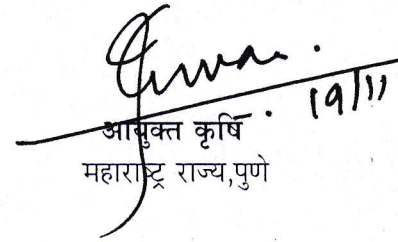 19/11
आयुक्त कृषि
महाराष्ट्र राज्य,पुणे